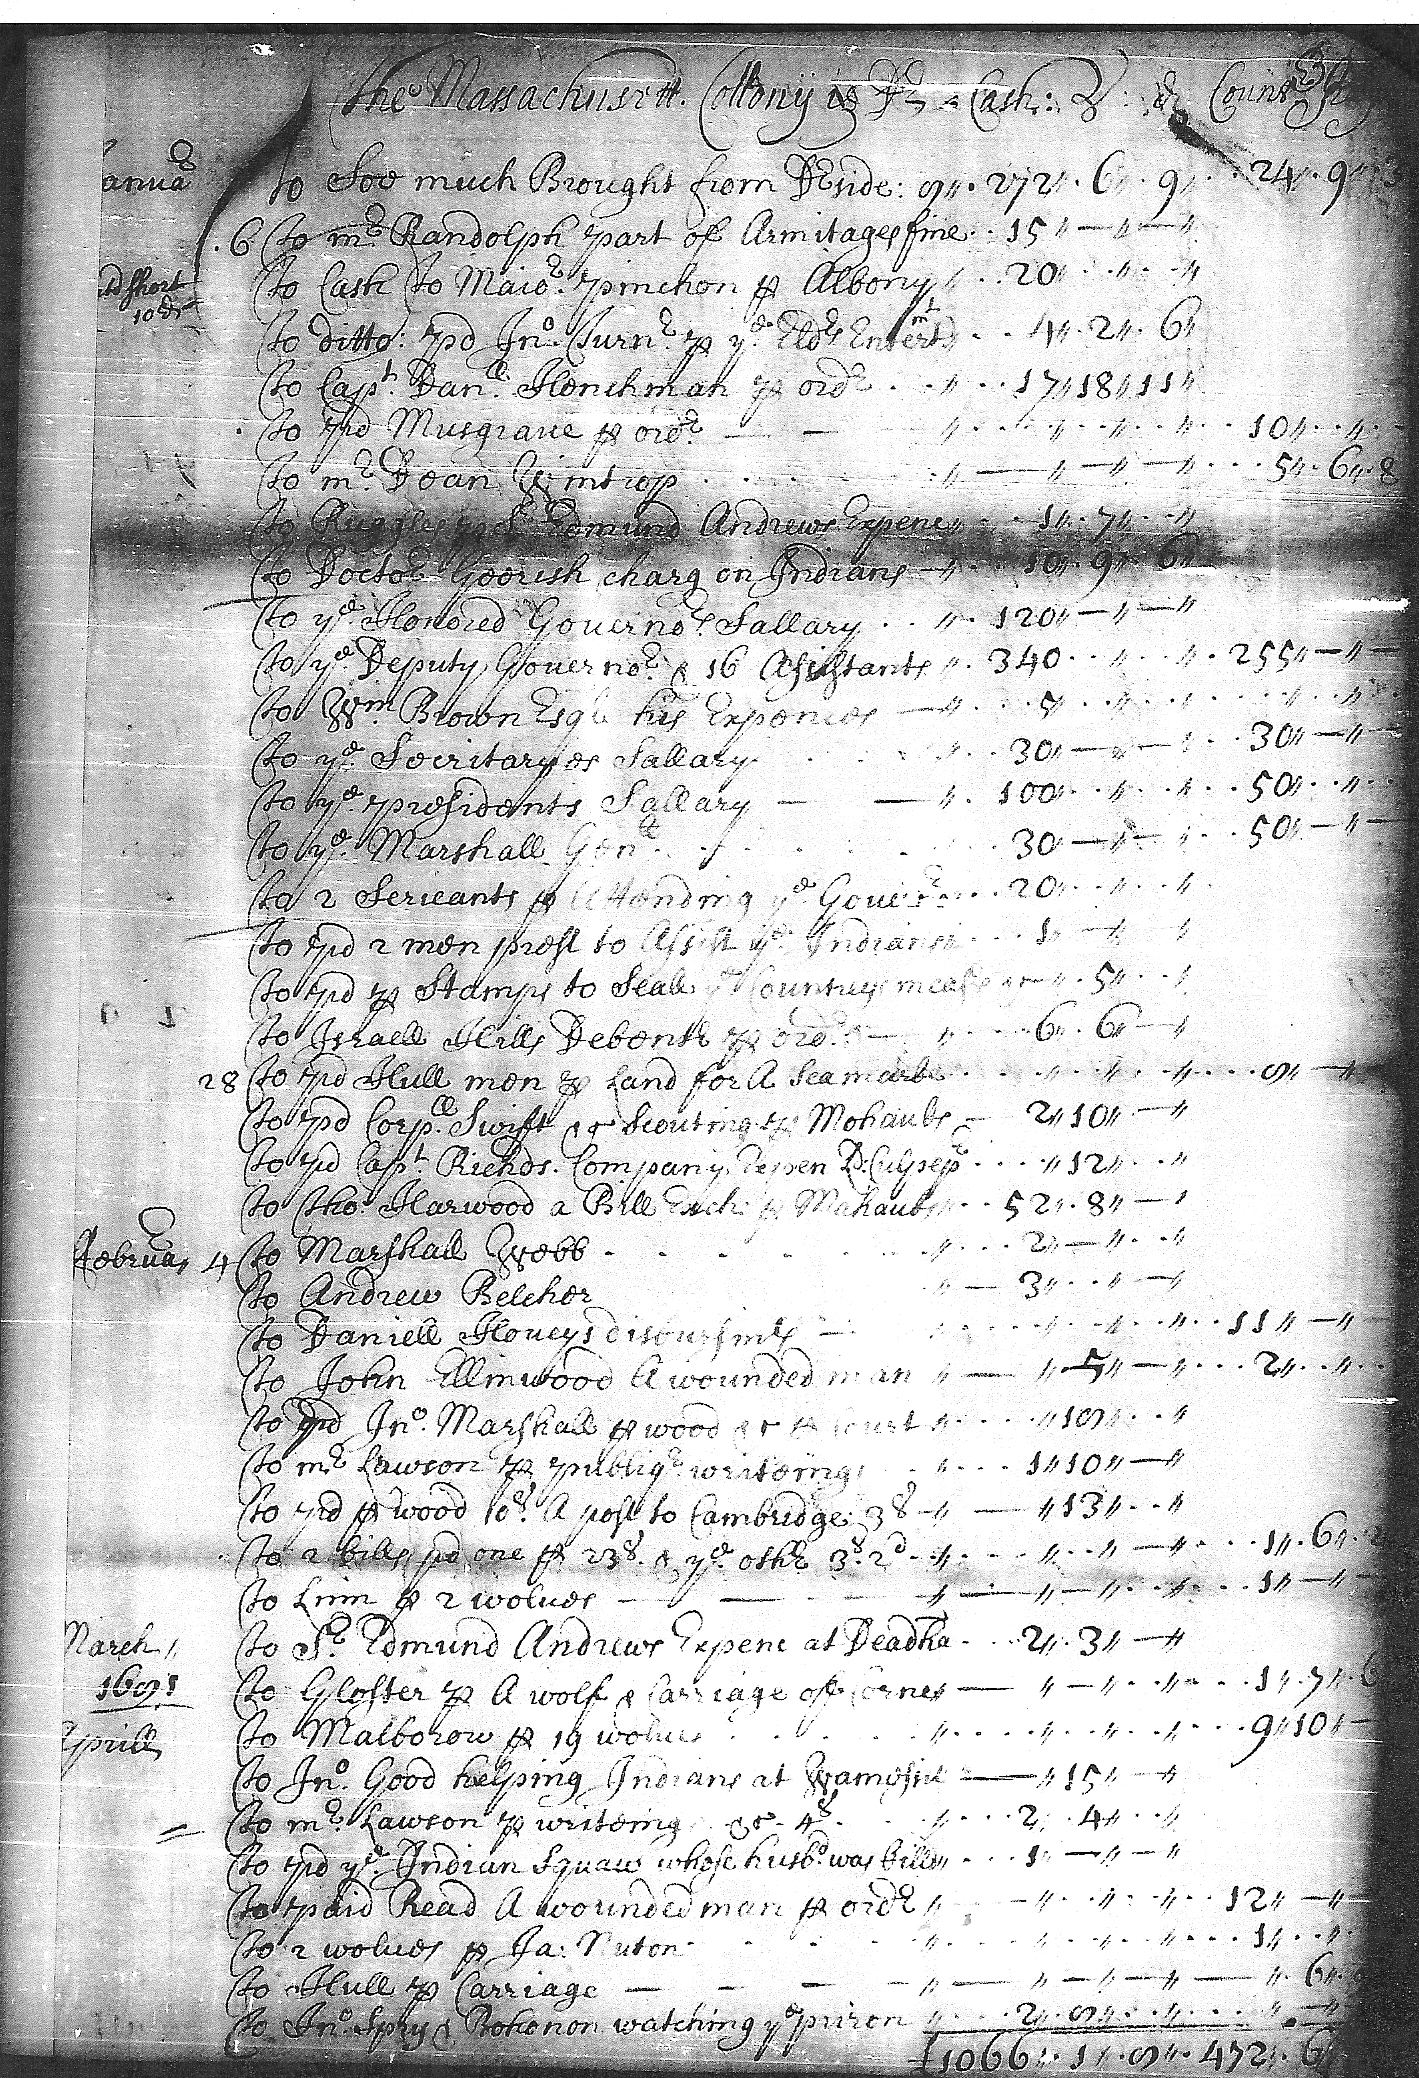 The Massachusetts Collony is Dr Cash: Countr
Janua to Soe much Brought from Dr side: 9 . 272 . 6 . 9 . . 24 . 9
. 6 to mr Randolph part of Armitages fine . . 15 — —
to Cash to Maior. pinchon p Albony . . 20 . .
short 10
to ditto: pd Jno. Turnr. p ye Eldrs Entertmt . . 4 . 2 . 6
to Capt. Danll. Henchman p ordr . . 17 18 11
to pd Musgraue p ordr — — . . 10 . .
to mr Dean Wintrop . . 5 . 6 . 8
to Ruggles Sr Edmund Andrews Expenc . 1 . 7 .
to Doctor Goorish charg on Indians — 10 . 9 . 6
to ye Honored Gouernors Sallary . . 120 — —
to ye Deputy Gouernor. & 16 Asistants . 340 . . 255 — —
to Wm. Brown Esqr his Expences — . . 5 . .
to ye Secritaryes Sallary . . 30 — — . . 30 — —
to ye presidents Sallary — — . 100 . . 50 . .
to ye Marshall Genll . . 30 — — . . 50 — —
to 2 Serieants p Attending ye Gouernr . . 20 . .
to pd 2 men prest to Assist ye Indians . . 1 — —
to pd p Stamps to Seale ye Countrys meass — 5 . .
to Israell Hills Debentr p ordr — . . 6 . 6 —
28 to pd Hull men p Land for A Seamarke . . 9 —
to pd Corpll. Swift & Scouting p Mohauks — 2 10 —
to pd Capt. Richds. Company Expen . . 12 . .
to Tho: Harwood a Bill Exch: p Mahauks . . 52 . 8 —
Februar 4 to Marshall Webb . . 2 — . .
to Andrew Belcher — 3 . . —
to Daniell Houeys disbursmts — . . 11 — —
to John Ellinwood A wounded man — 5 — . . 2 . .
to pd Jno. Marshall p wood & p Court . . 10 . .
to mr Lawson p publiqe writeing . . 1 10 —
to pd p wood 10s. A post to Cambridge: 3s — — 13 . .
to 2 bills pd one p 23s. & ye othr 3s. 2d . . 1 . 6 .
to Linn p 2 wolues — — . . 1 — —
March 1681 to Sr Edmund Andrews Expenc at Deadha . . 2 . 3 —
to Gloster p A wolf & Carriage of Cornes — — . . 1 . 7 . 6
Aprill to Malborow p 19 wolues . . 9 10 —
to Jno. Good helping Indians at Wamesit — 15 —
to mr. Lawson p writeing & 4s . . 2 . 4 . .
to pd ye Indian Squaw whose husbd was kild . . 1 — —
to paid Read A wounded man p ordr — . . 12 — —
to 2 wolues p Ja: Nuton . . 1 . .
to Hull p Carriage — — — — . 6 .
to Jno. Spry & Bohonon watching ye prison . . 2 . 9 . . —
1066 . 1 . 9 . 472 . 6